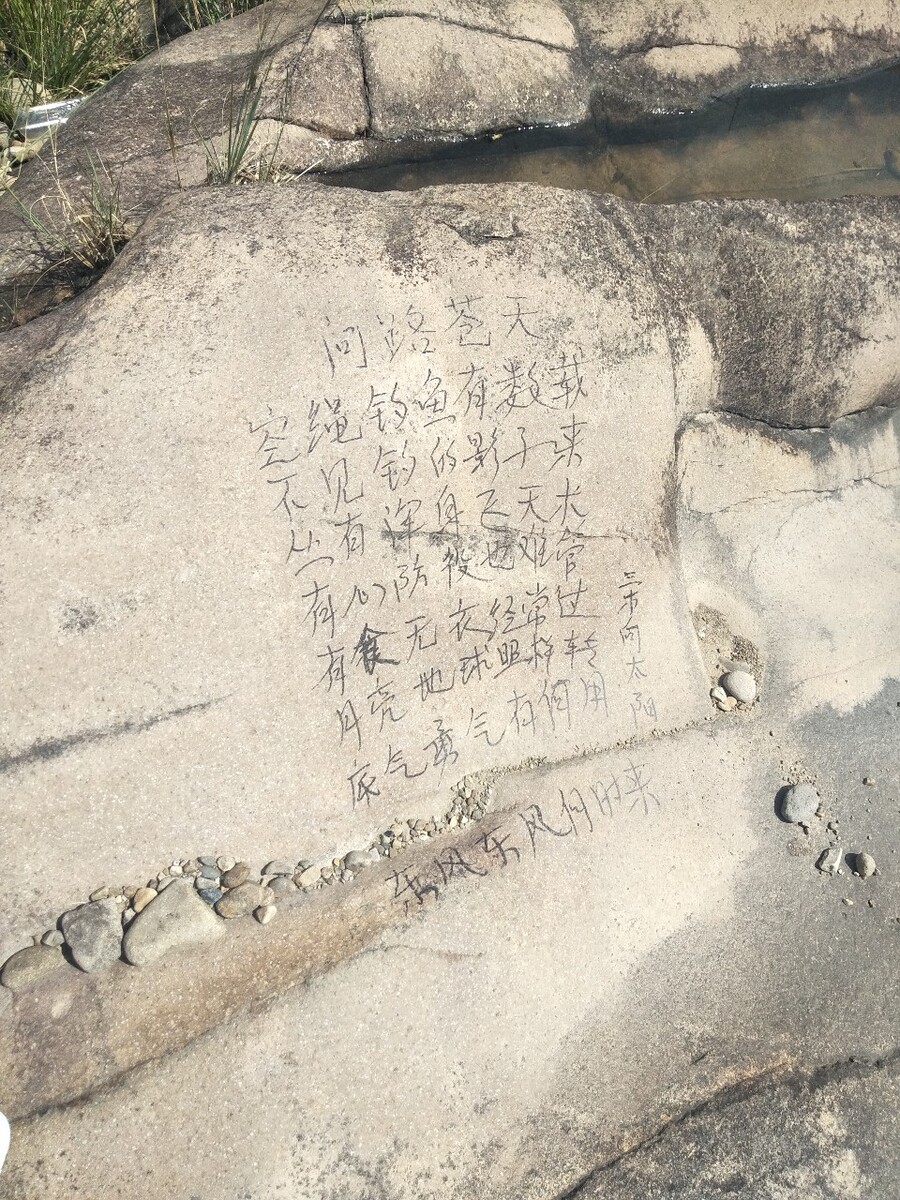 问路苍天
空绳钓鱼有数载
不见钓的影子来
从有浑身飞天术
有心防役也难管
有食无衣经常过
月亮地球照样转
底气勇气有何用
东风东风何时来
来向太阳